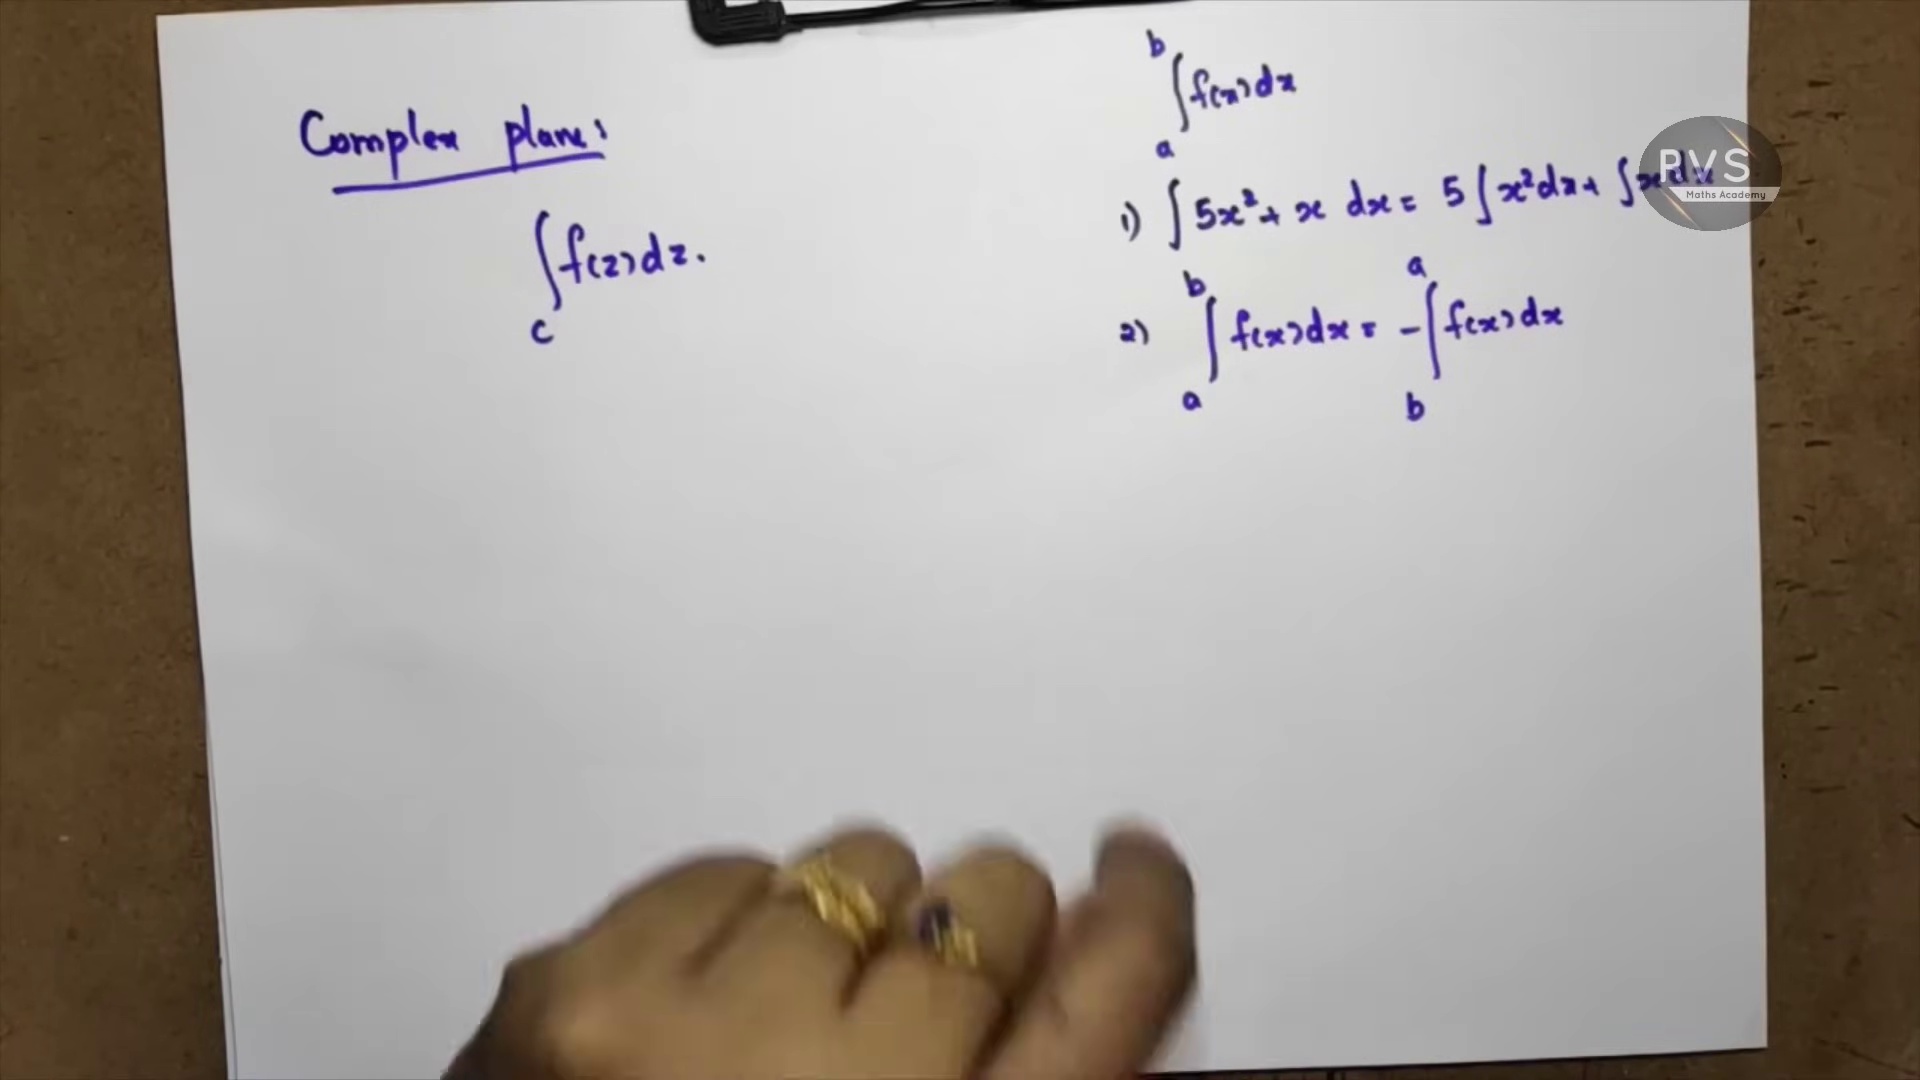 Complex plane:
∫_C f(z) dz.
∫_a^b f(x) dx
1) ∫ 5x² + x dx = 5 ∫ x² dx + ∫ x dx
2) ∫_a^b f(x) dx = - ∫_b^a f(x) dx
RVS
Maths Academy